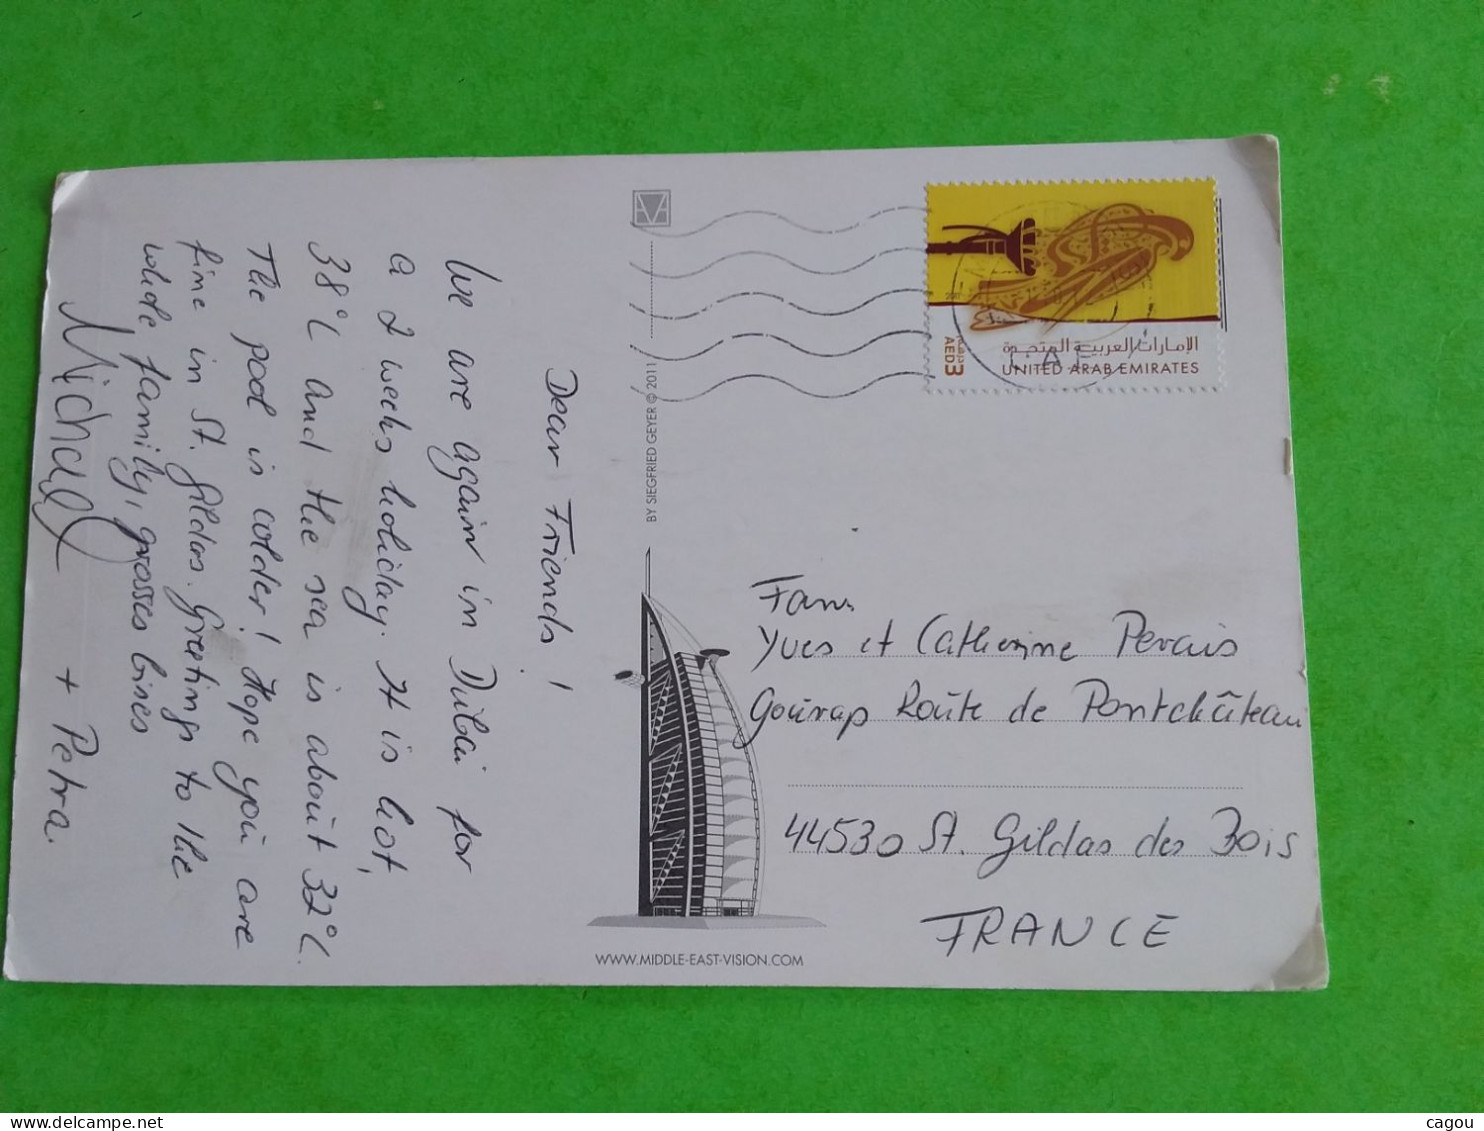 Dear Friends!
We are again in Dubai for
a 2 weeks holiday. It is hot,
38°C and the sea is about 32°C.
The pool is colder! Hope you are
fine in St. Gildas. Greetings to the
whole family, grosses bises
Michael + Petra.
BY SIEGFRIED GEYER © 2011
WWW.MIDDLE-EAST-VISION.COM
الإمارات العربية المتحدة
UNITED ARAB EMIRATES
AED3
Fam.
Yves et Catherine Perais
Gourap Route de Pontchâteau
44530 St. Gildas des Bois
FRANCE
cagou